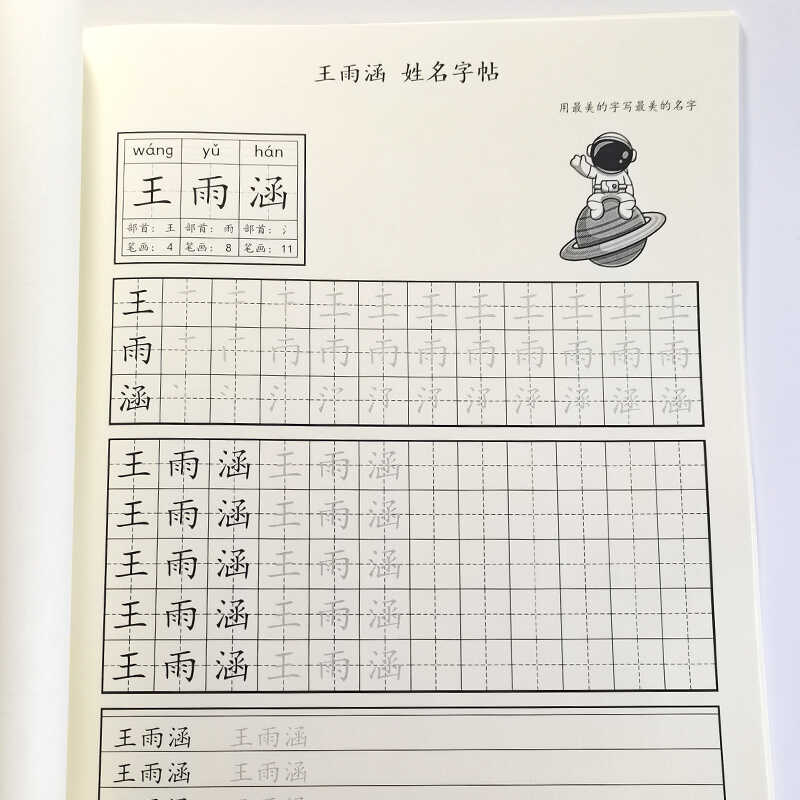 王雨涵 姓名字帖
用最美的字写最美的名字
wáng yǔ hán
王 雨 涵
部首： 王 部首： 雨 部首： 氵
笔画： 4 笔画： 8 笔画： 11
王 王 王 王 王 王 王 王 王
雨 雨 雨 雨 雨
涵 涵
王 雨 涵 王 雨 涵
王 雨 涵 王 雨 涵
王 雨 涵 王 雨 涵
王 雨 涵 王 雨 涵
王 雨 涵 王 雨 涵
王雨涵 王雨涵
王雨涵 王雨涵